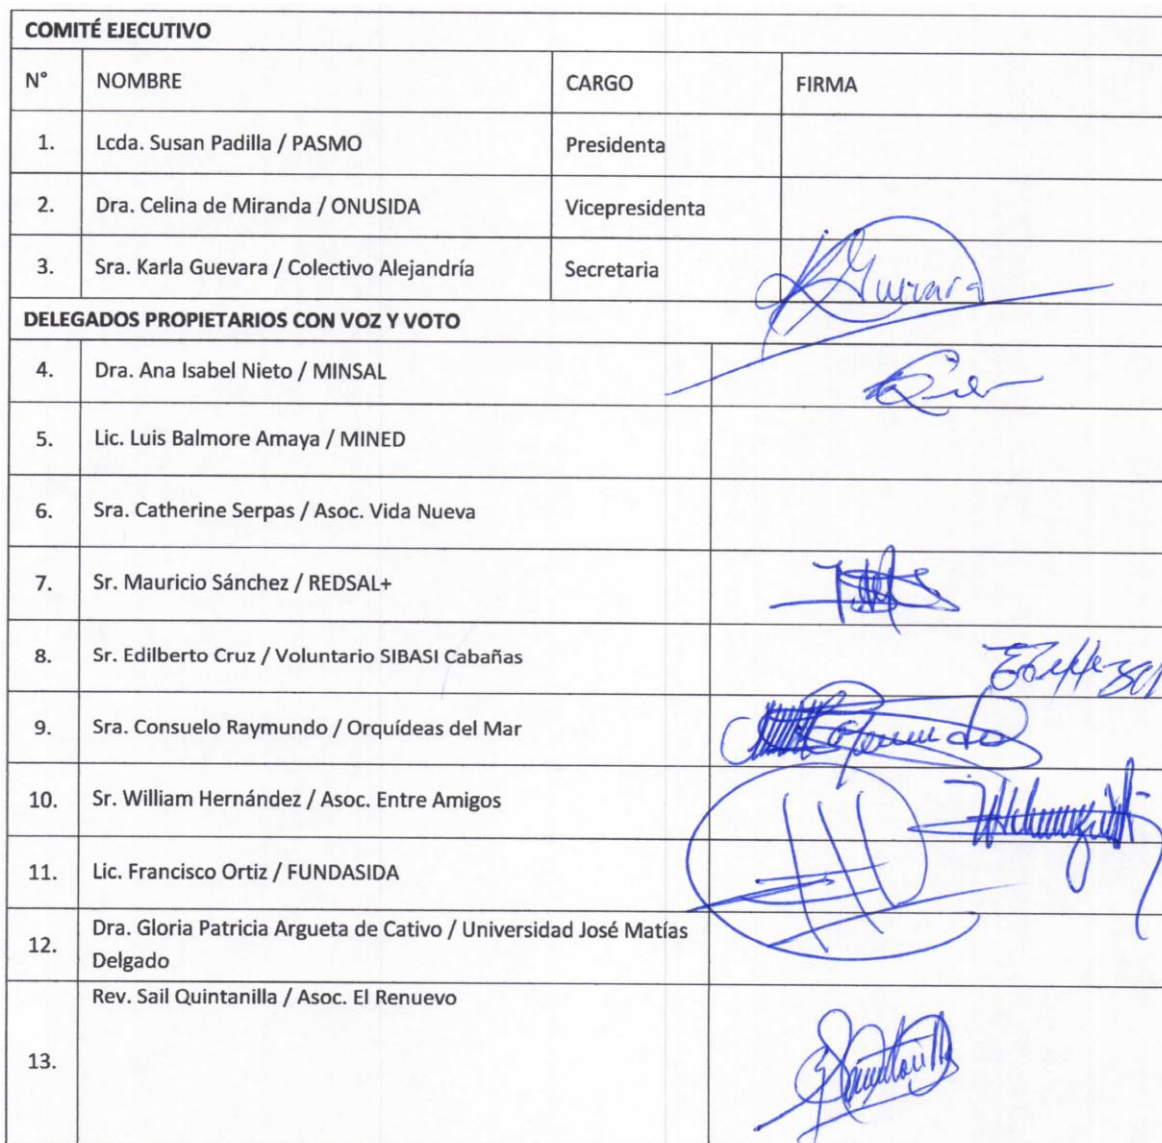 COMITÉ EJECUTIVO
N° NOMBRE CARGO FIRMA
1. Lcda. Susan Padilla / PASMO Presidenta
2. Dra. Celina de Miranda / ONUSIDA Vicepresidenta
3. Sra. Karla Guevara / Colectivo Alejandría Secretaria
DELEGADOS PROPIETARIOS CON VOZ Y VOTO
4. Dra. Ana Isabel Nieto / MINSAL
5. Lic. Luis Balmore Amaya / MINED
6. Sra. Catherine Serpas / Asoc. Vida Nueva
7. Sr. Mauricio Sánchez / REDSAL+
8. Sr. Edilberto Cruz / Voluntario SIBASI Cabañas
9. Sra. Consuelo Raymundo / Orquídeas del Mar
10. Sr. William Hernández / Asoc. Entre Amigos
11. Lic. Francisco Ortiz / FUNDASIDA
12. Dra. Gloria Patricia Argueta de Cativo / Universidad José Matías
Delgado
13. Rev. Sail Quintanilla / Asoc. El Renuevo